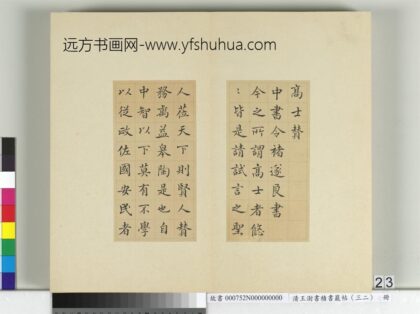 远方书画网-www.yfshuhua.com
高士賛
中書令褚遂良書
今之所謂高士者悠
〻皆是請試言之聖
人莅天下則賢人賛
務禹益皋陶是也自
中智以下莫有不學
以從政佐國安民者
23
故書 000752N000000000 清王澍書積書巖帖(三二) 冊